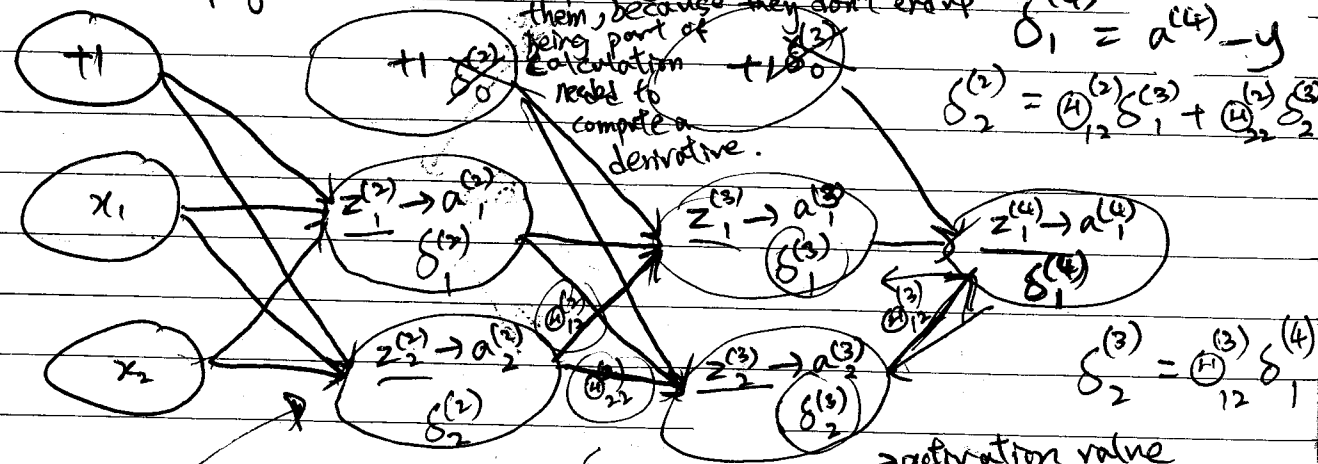 them, because they don't end up
being part of
calculation
needed to
compute a
derivative.
δ₁⁽⁴⁾ = a⁽⁴⁾ - y
δ₂⁽²⁾ = Θ₁₂⁽²⁾ δ₁⁽³⁾ + Θ₂₂⁽²⁾ δ₂⁽³⁾
+1
+1 δ₀⁽²⁾
+1 δ₀⁽³⁾
x₁
z₁⁽²⁾ → a₁⁽²⁾
δ₁⁽²⁾
z₁⁽³⁾ → a₁⁽³⁾
δ₁⁽³⁾
z₁⁽⁴⁾ → a₁⁽⁴⁾
δ₁⁽⁴⁾
Θ₁₂⁽²⁾
Θ₁₂⁽³⁾
x₂
z₂⁽²⁾ → a₂⁽²⁾
δ₂⁽²⁾
Θ₂₂⁽²⁾
z₂⁽³⁾ → a₂⁽³⁾
δ₂⁽³⁾
δ₂⁽³⁾ = Θ₁₂⁽³⁾ δ₁⁽⁴⁾
activation value